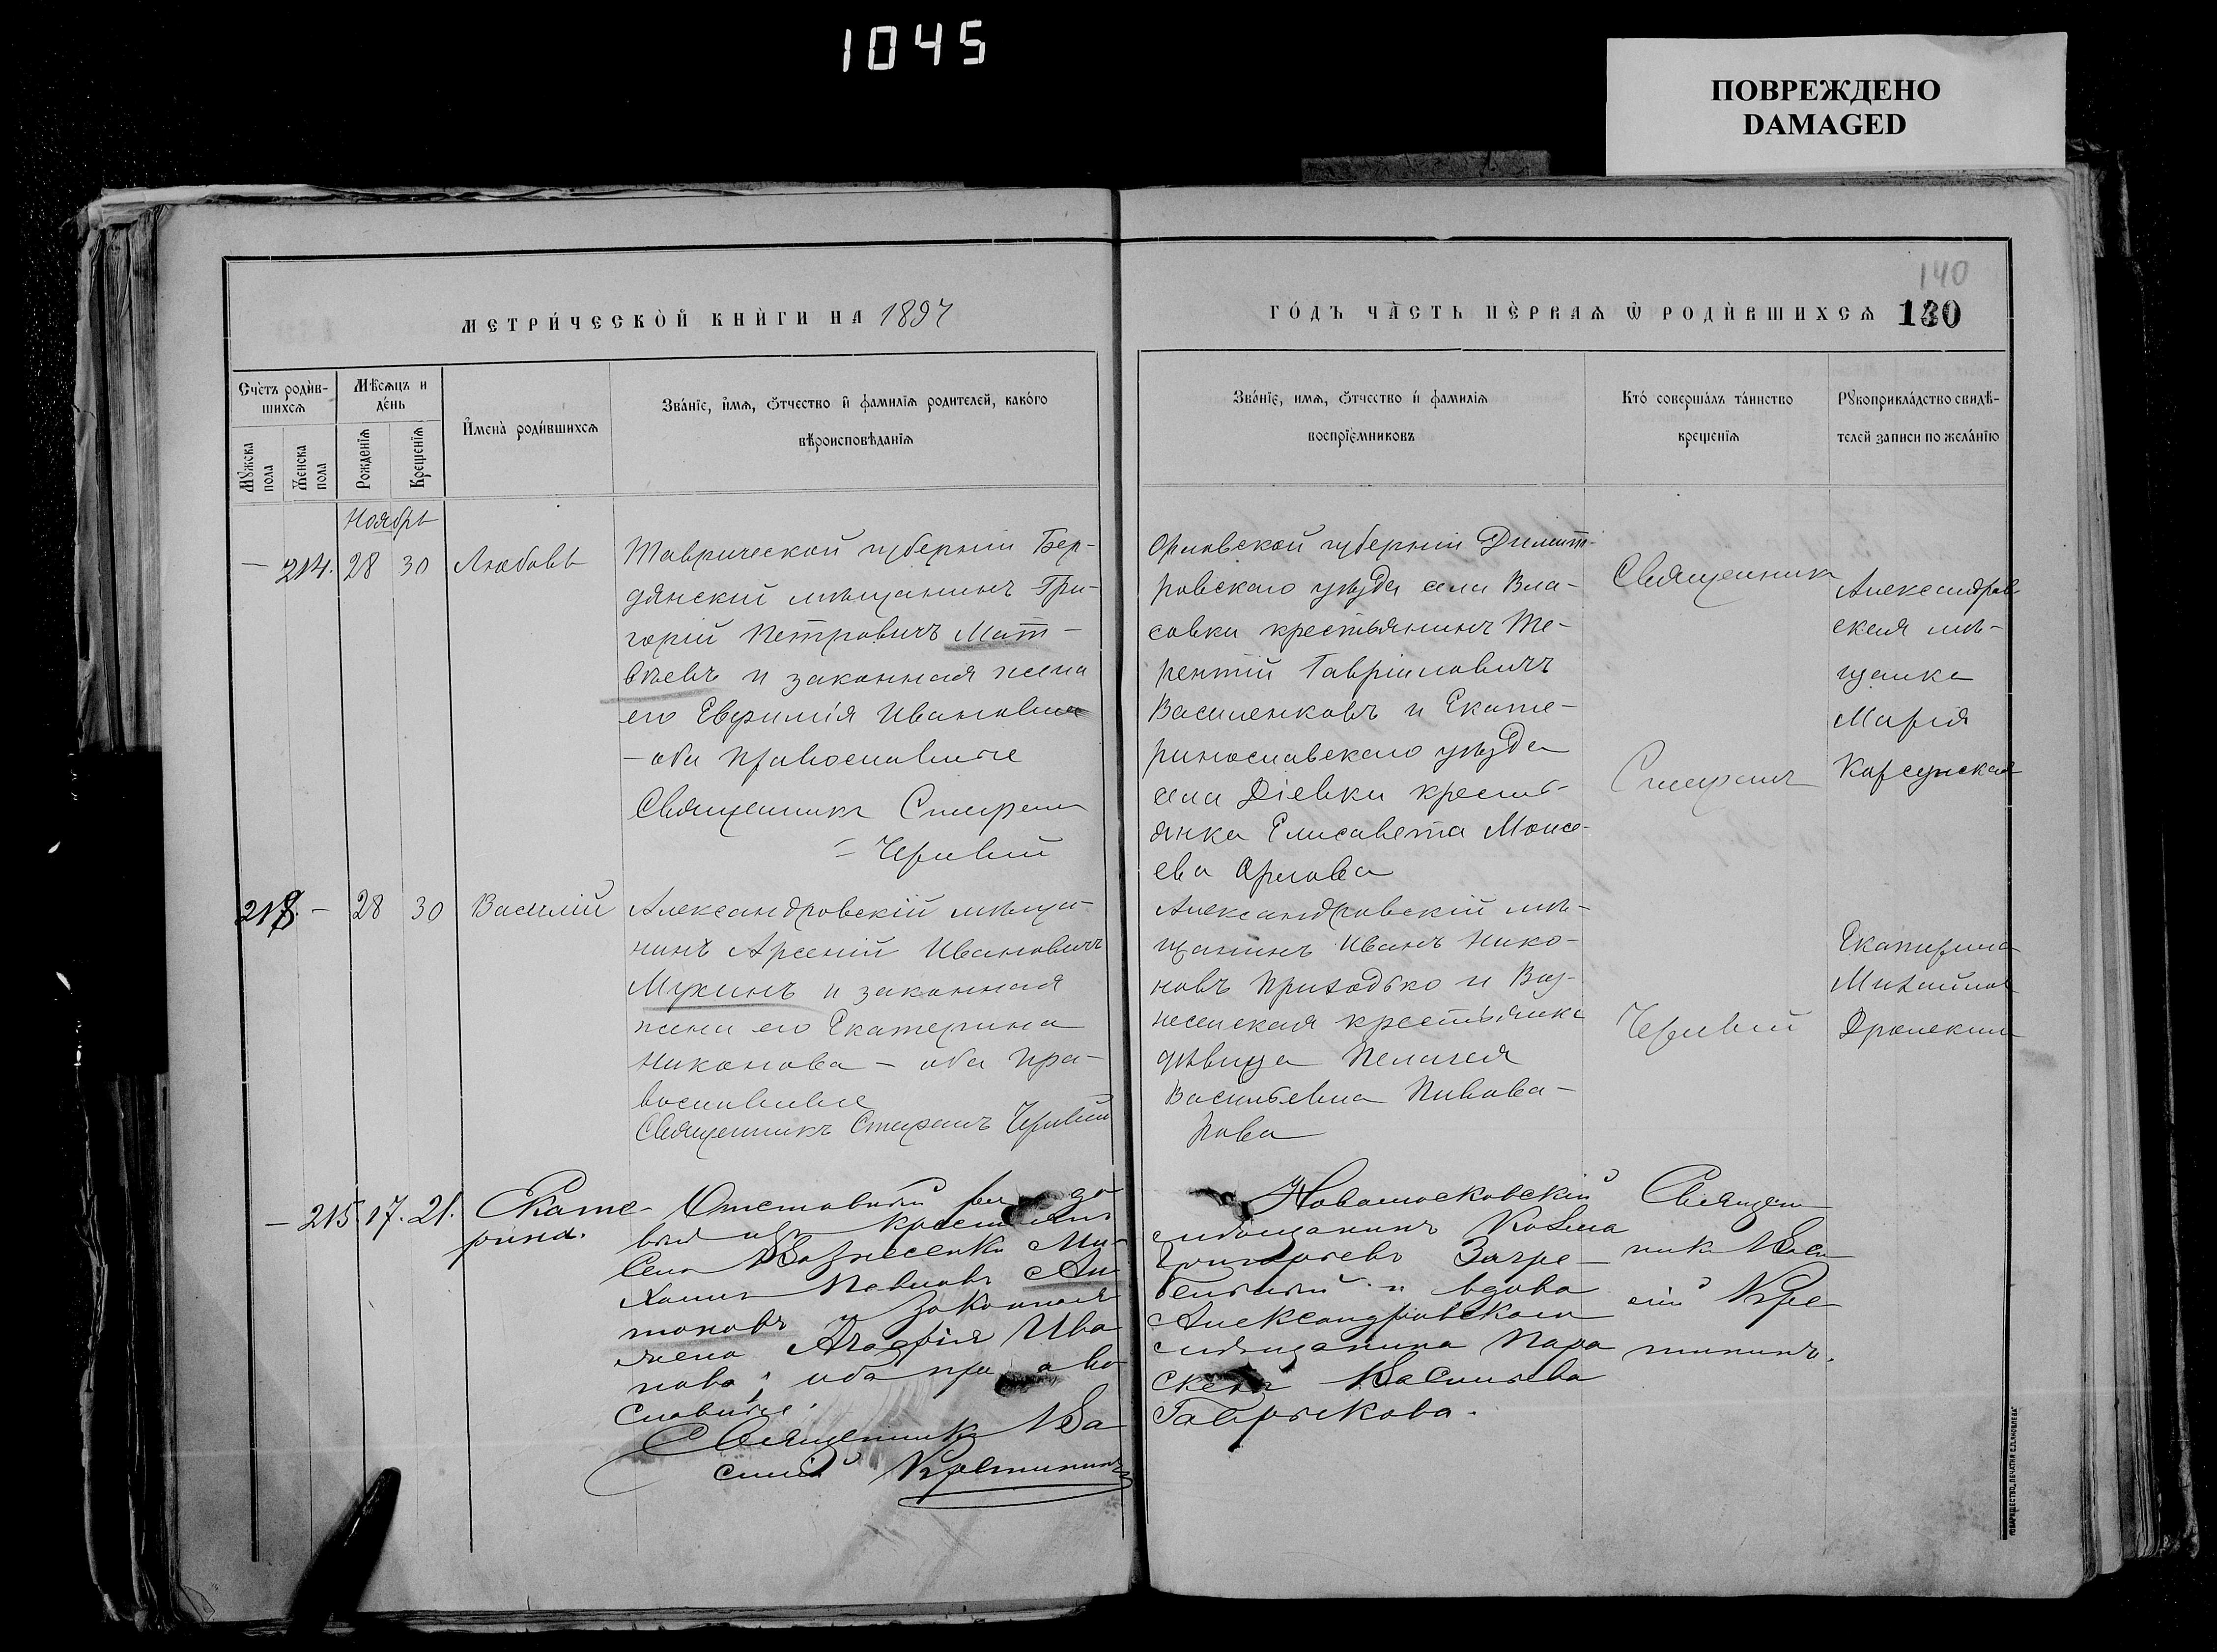 1045
ПОВРЕЖДЕНО
DAMAGED
140
МЕТРИ́ЧЕСКОЙ КНИ́ГИ НА 1897
ГО́ДЪ ЧА́СТЬ ПЕ́РВАѦ Ѡ РОДИ́ВШИХСѦ 130
Счѐтъ роди́в-
шихсѧ
Мѣсѧцъ и
де́нь
Мꙋжска
пола
Женска
пола
Рожденїѧ
Крещенїѧ
И҆мена̀ роди́вшихсѧ
Зва́нїе, и҆мѧ, ѻ҆тчество и҆ фамилїѧ родителей, како́го
вѣроисповѣданїѧ
Зва́нїе, имѧ, ѻ҆тчество и҆ фамилїѧ
воспрїе́мниковъ
Кто́ соверша́лъ та́инство
крещенїѧ
Рꙋкоприкла́дство свидѣ-
телей записи по жела́нїю
Ноябрь
— 214. 28 30 Любовь
Таврической губерніи Бер-
дянскій мѣщанинъ Гри-
горій Петровичъ Мат-
вѣевъ и законная жена
его Евфимія Ивановна
— оба православные
Священникъ Стефанъ
= Черивый
Орловской губерніи Димит-
ровскаго уѣзда села Вла-
совки крестьянинъ Те-
рентій Гавріиловичъ
Василенковъ и Екате-
ринославскаго уѣзда
села Діевки кресть-
янка Елисавета Моисе-
ева Орлова
Священникъ
Стефанъ
Александров-
ская мѣ-
щанка
Марія
Корсунская
218. — 28 30 Василій
Александровскій мѣща-
нинъ Арсеній Ивановичъ
Мухинъ и законная
жена его Екатерина
Никонова — оба пра-
вославные
Священникъ Стефанъ Черивый
Александровскій мѣ-
щанинъ Иванъ Нико-
новъ Приходько и Воз-
несенская крестьянка
дѣвица Пелагея
Васильевна Пивова-
рова
Черивый
Екатерина
Михайлова
— 215. 17. 21. Екате-
рина.
Отставной
вой изъ крестьянъ
села Вознесенки Ми-
хаилъ Павловъ Ан-
тоновъ и законная
жена Агафія Ива
нова; оба право
славные.
Священникъ Ва
силій Кретининъ
Новомосковскій
мѣщанинъ Козьма
Григорьевъ Загре-
бельный и вдова
Александровскаго
мѣщанина Пара
скева Васильева
Гаврыкова.
Священ
никъ Васи
лій Кре
тининъ.